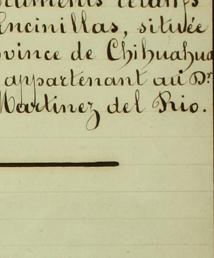 Encinillas, située
ovince de Chihuahua
appartenant au Dr
Martinez del Rio.